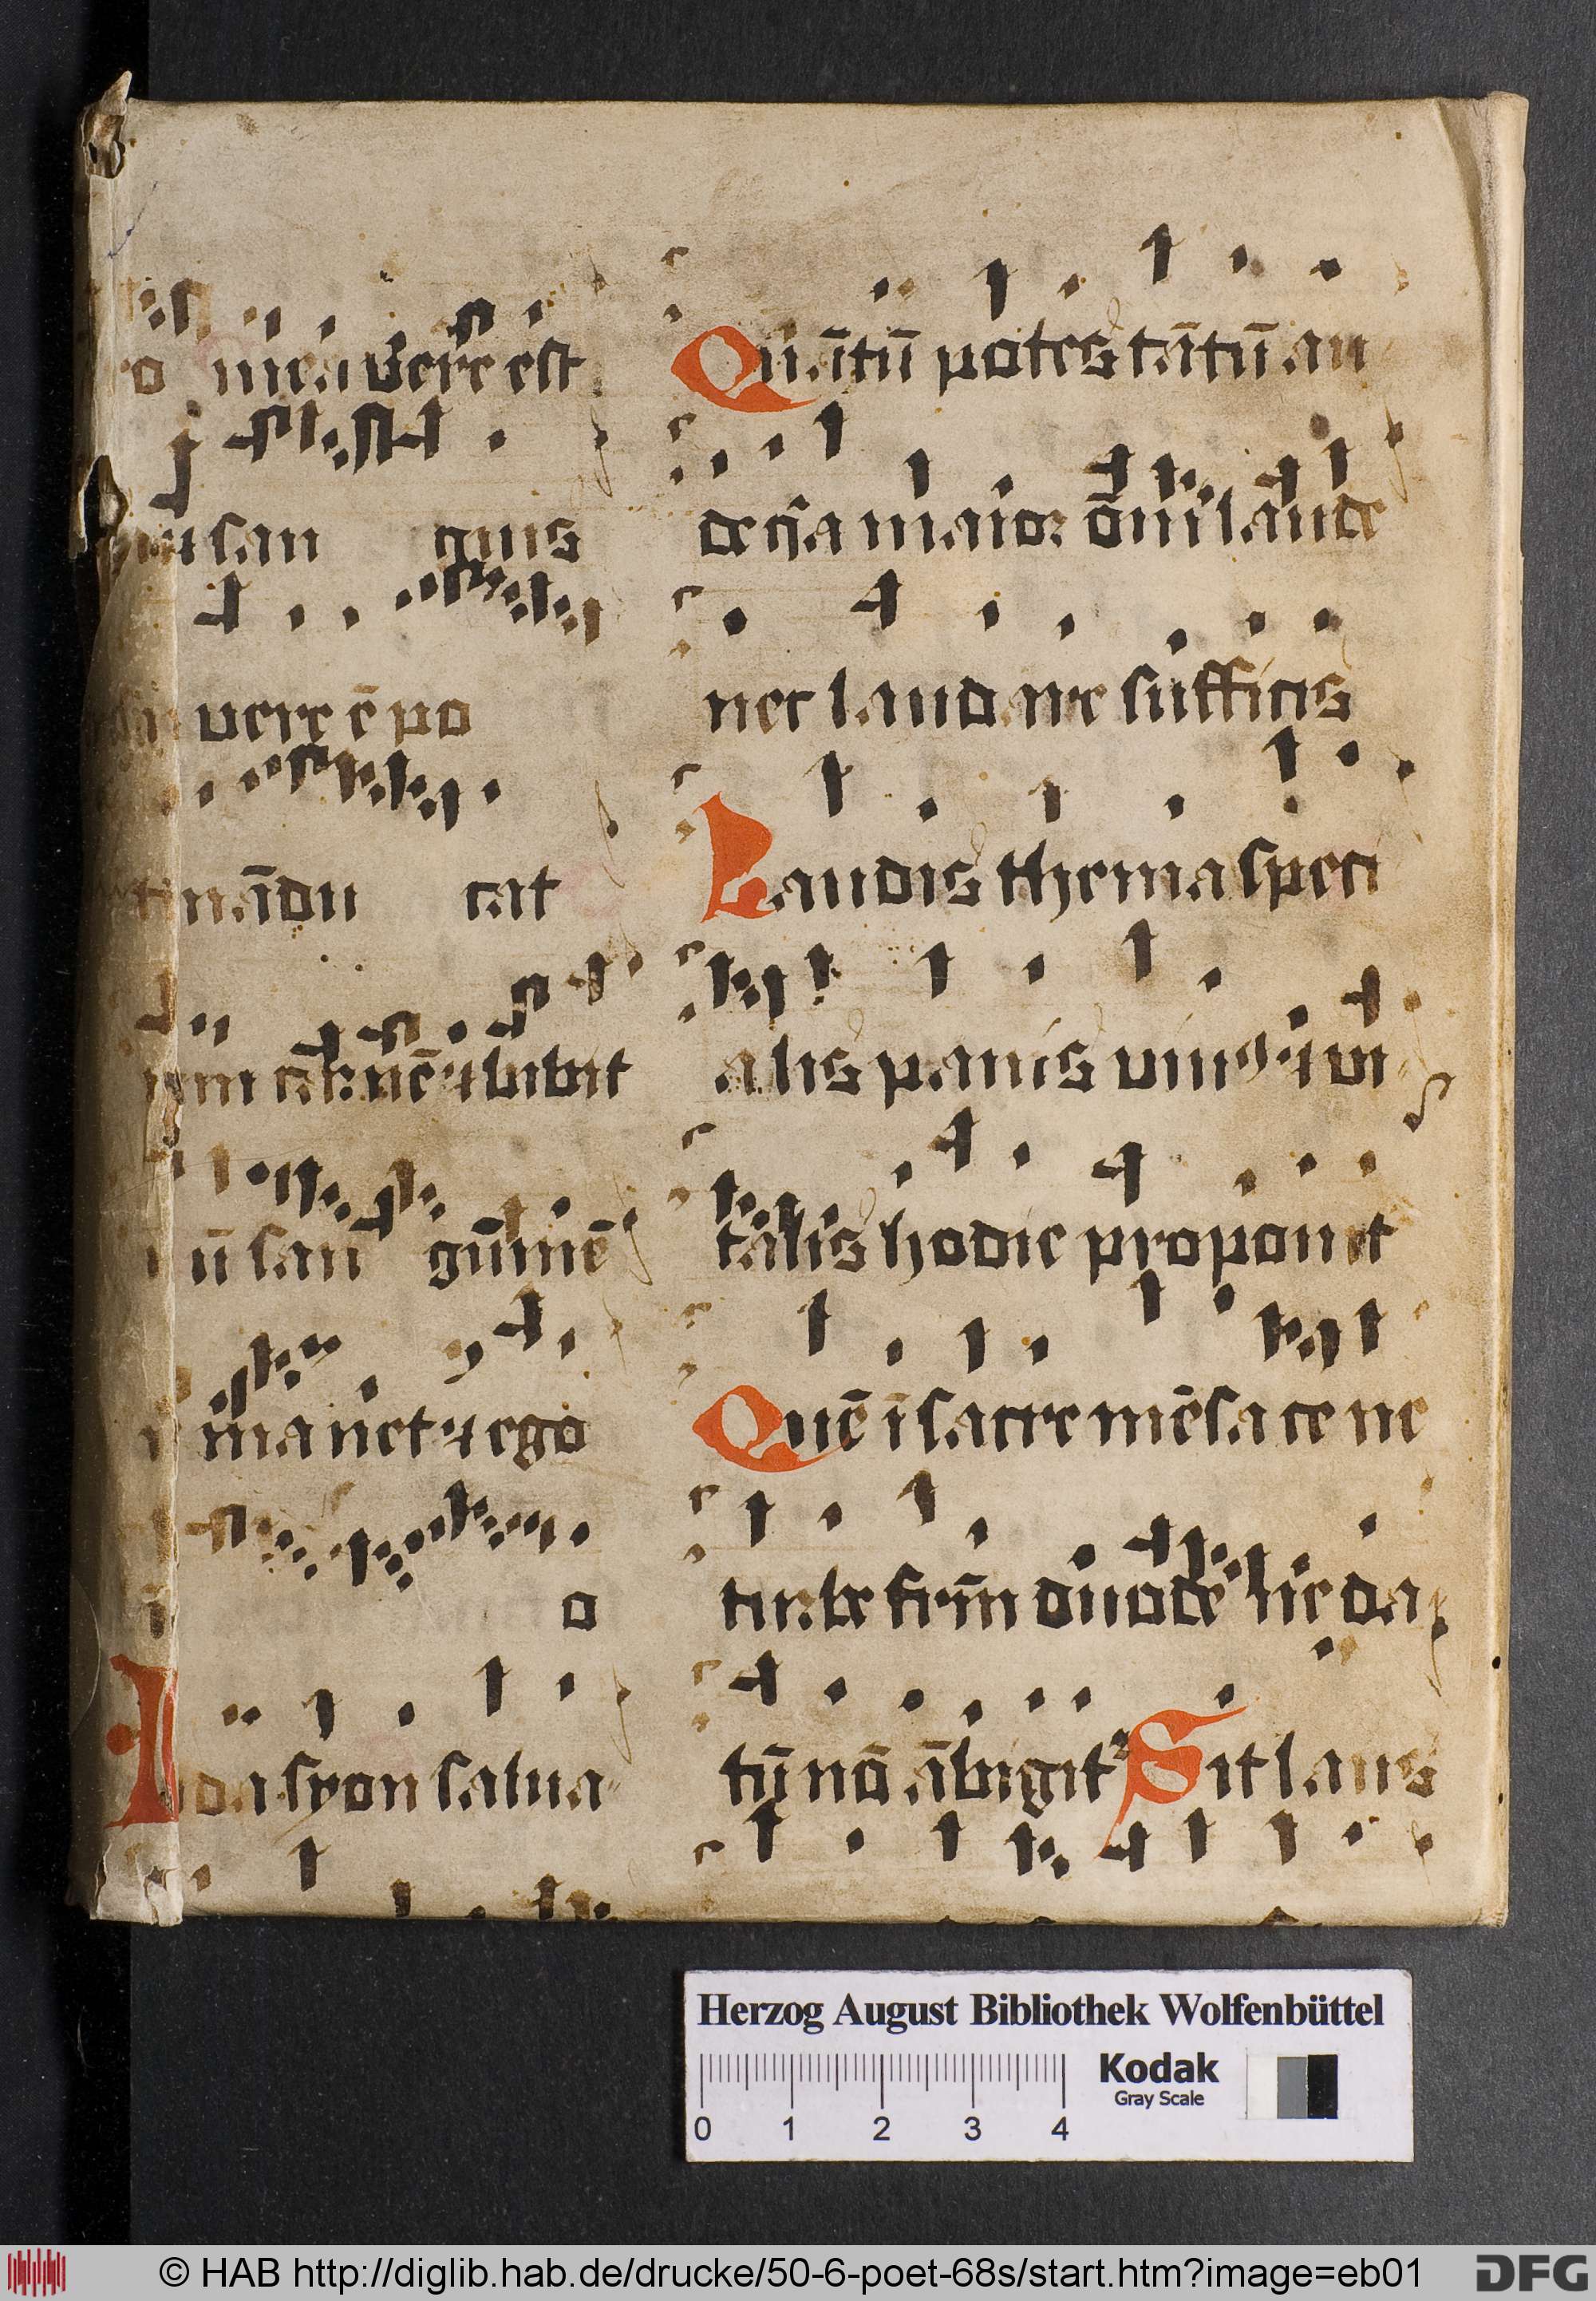 o mea vere est
⁊ san guis
vere ē po
nādu cat
carnē ⁊ bibit
ū san guinē
manet ⁊ ego
o
Lauda syon salua
Quātū potes tātū au
de q̄a maior om̄i laude
nec laudare sufficis
Laudis thema speci
alis panis viuus ⁊ vi
talis hodie proponit
Quē ī sacre mēsa ce ne
turbe frm̄ duode'
nō ābigit' Sit laus
Herzog August Bibliothek Wolfenbüttel
Kodak
Gray Scale
0 1 2 3 4
© HAB http://diglib.hab.de/drucke/50-6-poet-68s/start.htm?image=eb01
DFG